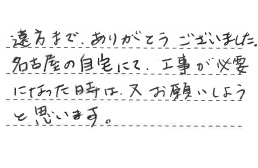 遠方まで、ありがとうございました。
名古屋の自宅にて、工事が必要
になった時は、又お願いしよう
と思います。